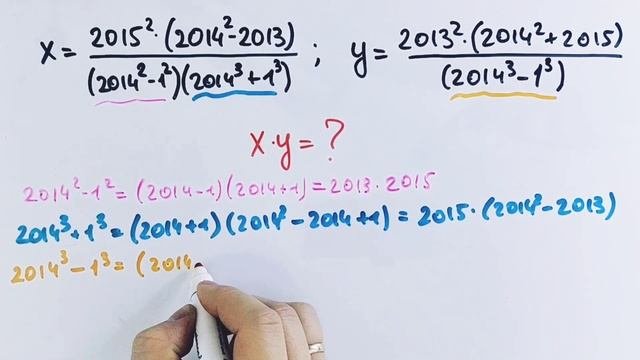 x = 2015²·(2014²-2013) / (2014²-1²)(2014³+1³) ; y = 2013²·(2014²+2015) / (2014³-1³)
x·y = ?
2014²-1² = (2014-1)(2014+1) = 2013·2015
2014³+1³ = (2014+1)(2014²-2014+1) = 2015·(2014²-2013)
2014³-1³ = (2014